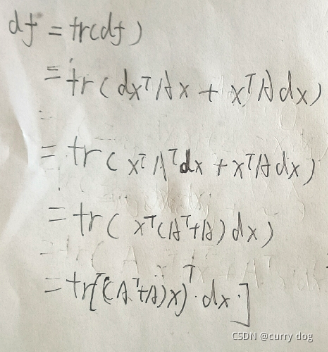 df = tr(df)
= tr(dxᵀAx + xᵀAdx)
= tr(xᵀAᵀdx + xᵀAdx)
= tr(xᵀ(Aᵀ+A)dx)
= tr[((Aᵀ+A)x)ᵀ·dx]
CSDN @curry dog